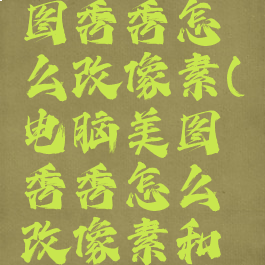 图秀秀怎
么改像素(
电脑美图
秀秀怎么
改像素和